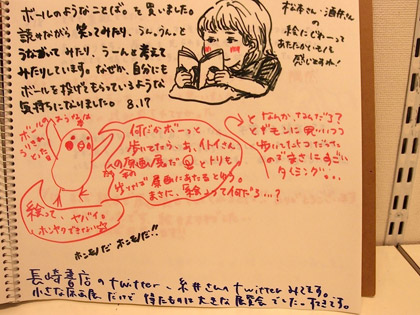 ボールのようなことばを買いました。
読みながら笑ってみたり、うん。うん。と
うなずってみたり、うーんと考えて
みたりしています。なぜか、自分にも
ボールを投げてもらっているような
気持ちになりました。 8.17
松本さん・酒井さん
の
絵にどれーって
あたたかいもの
感じますね!
ボールのような
絵って、ヤバイ。
ホンヤクできない
何だかボーっと
歩いてたら、あ、イトイさん
の原画展だ と トリも
歩けば 原画にあたるとゆう。
まさに、絵って何だろ…?
となんか、なんだろ?
とギモンに思いつつ
歩いて
のでまさにすごい
タイミング…
ホンモノだ ホンモノだ!!
長崎書店のtwitter、糸井さんのtwitterみてます。
小さな原画展だけど 待たものに大きな展覧会でした…すてきです。